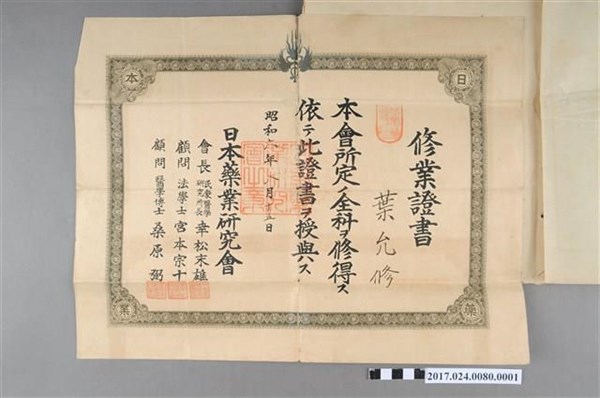 日
本
藥
業
修業證書
葉允修
本會所定ノ全科ヲ修得ス
依テ此證書ヲ授與ス
昭和六年八月十五日
日本藥業研究會
會長 民衆醫學研究所長 幸松末雄
顧問 法學士 宮本宗十
顧問 醫學博士 桑原弼
2017.024.0080.0001